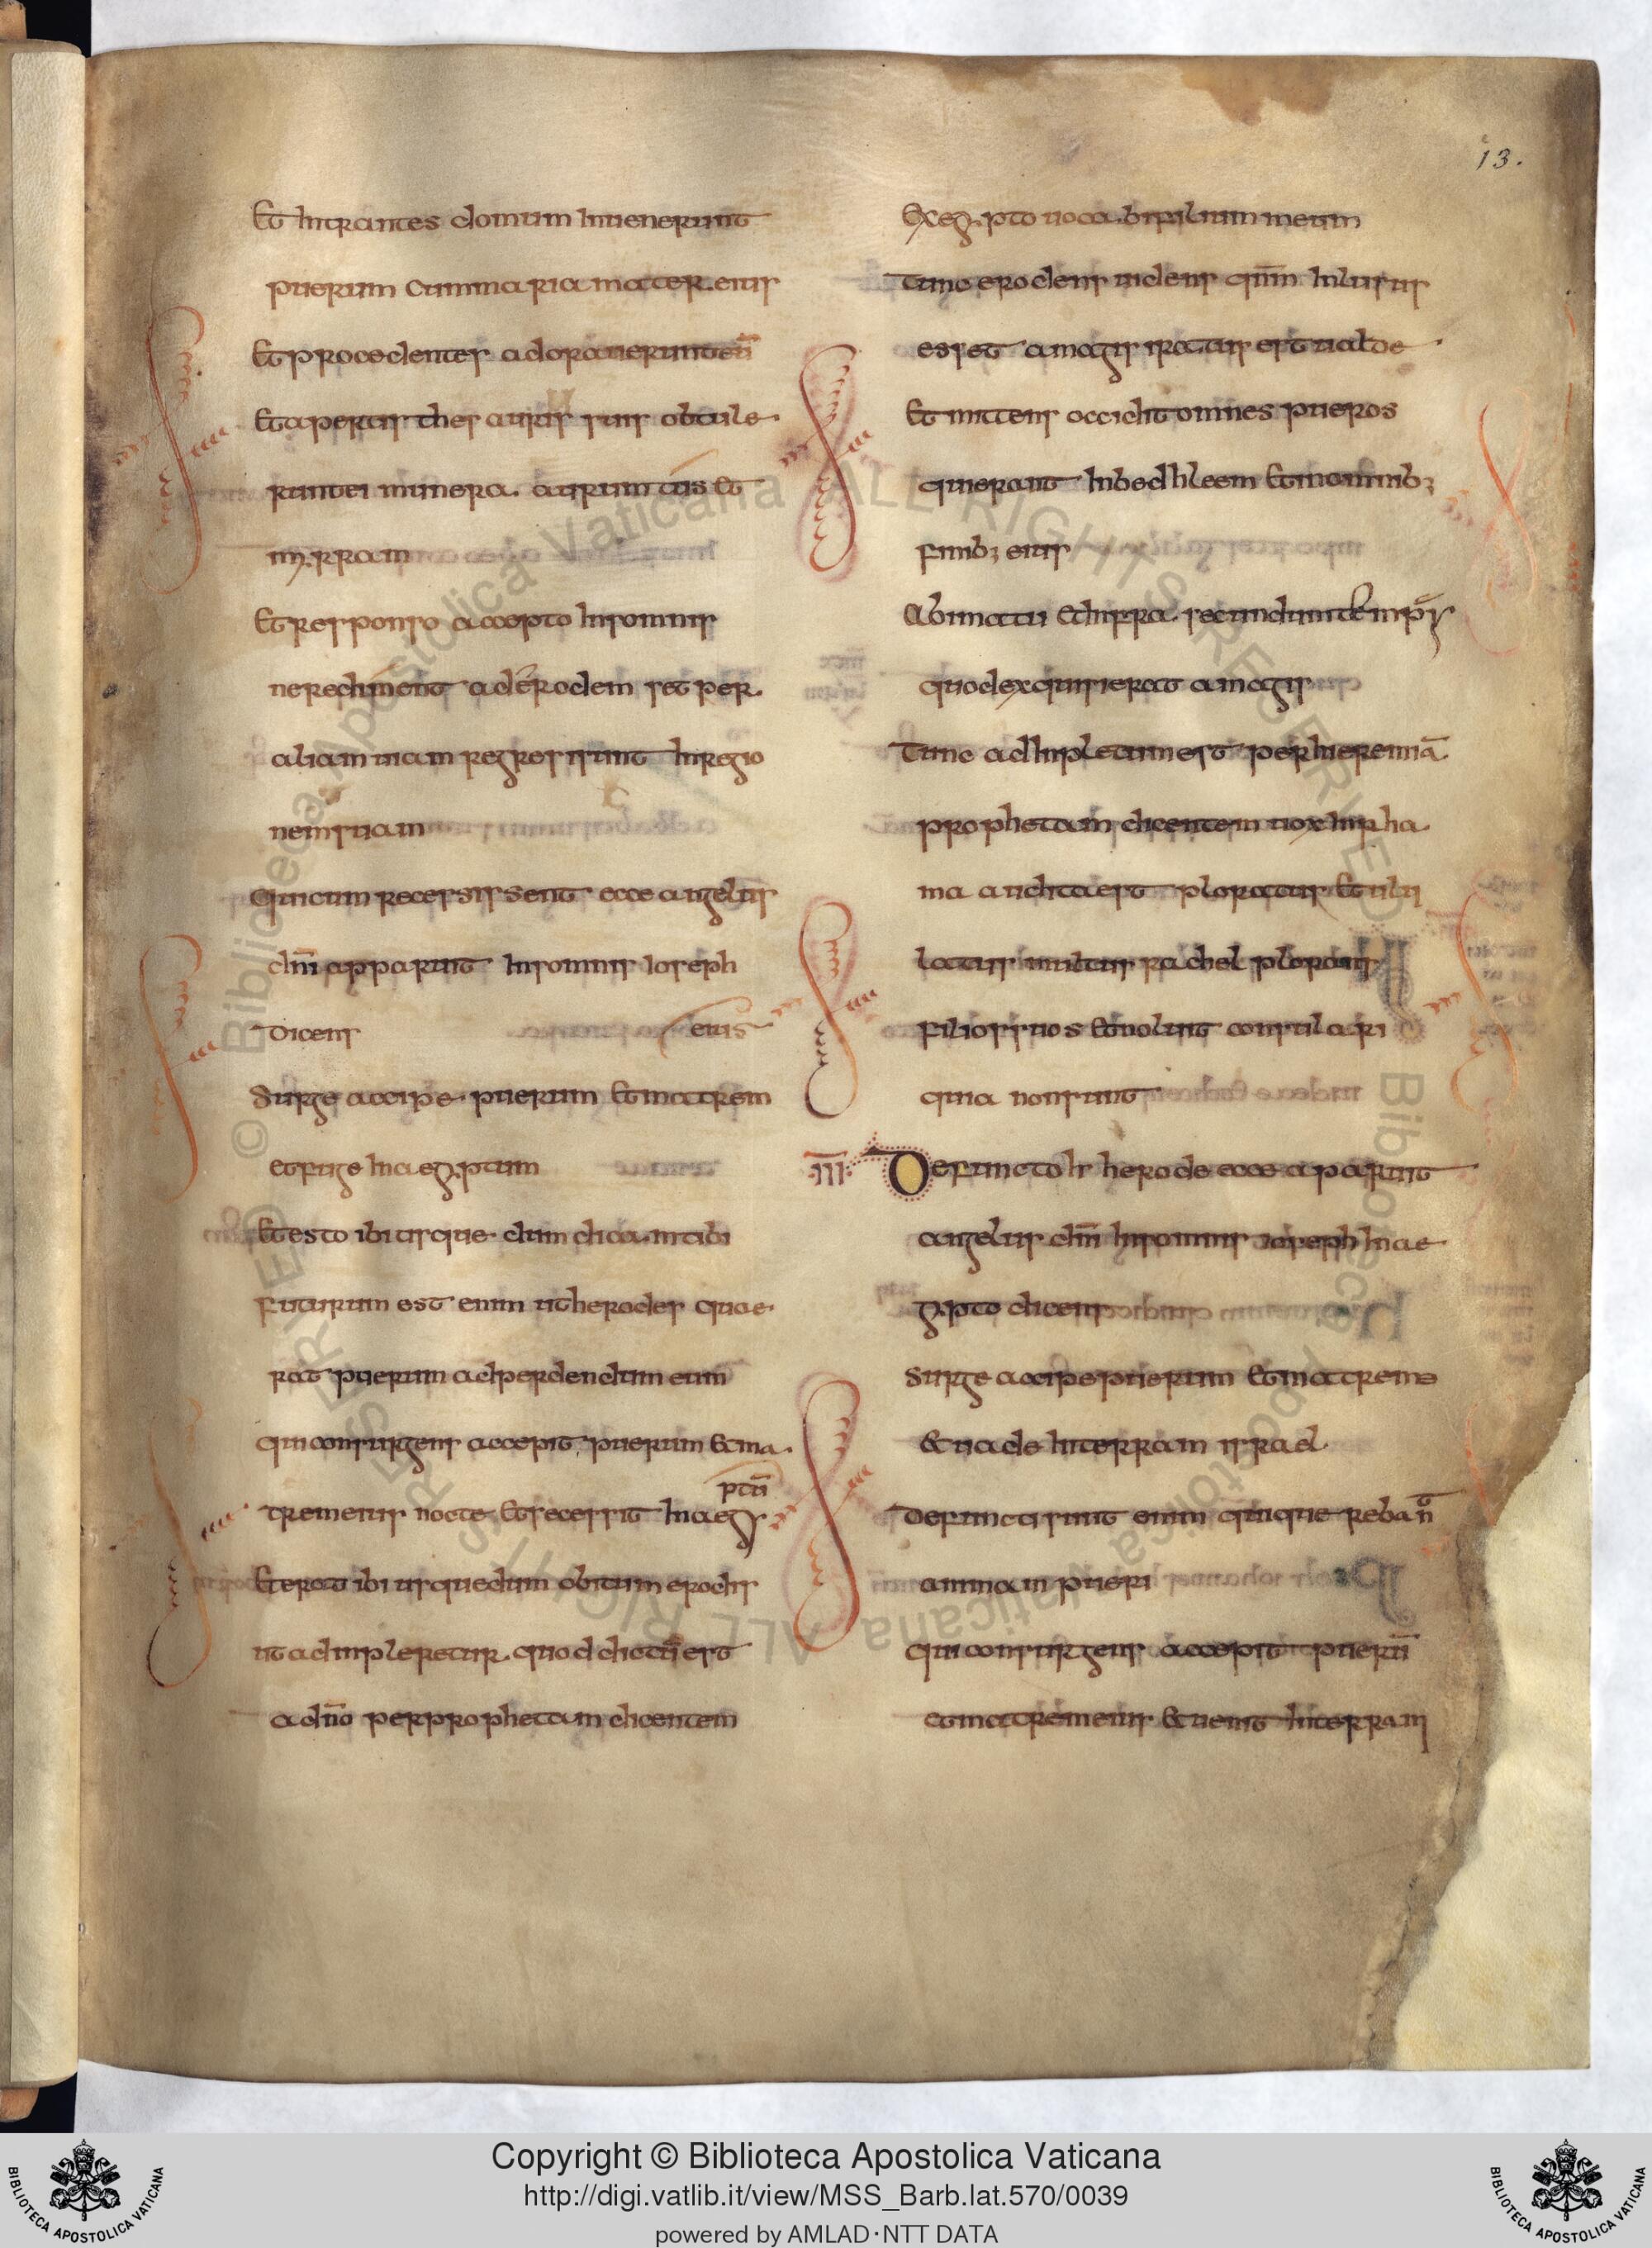 13.
Et intrantes domum inuenerunt
puerum cum maria mater eius
Et procedentes adorauerunt eū
Et apertis thesauris suis obtule
runt ei munera aurum tus et
myrram
Et responso accepto in somnis
ne redirent ad erodem set per
aliam uiam regressi sunt in regio
nem suam
Qui cum recessissent ecce angelus
dn̄i apparuit in somnis ioseph
dicens
eius
Surge accipe puerum et matrem
et fuge in aegyptum
Et esto ibi usque dum dicam tibi
futurum est enim ut herodes quae
rat puerum ad perdendum eum
qui consurgens accepit puerum et ma
ptū
trem eius nocte et recessit in aegy
Et erat ibi usque dum obitum erodis
ut adinpleretur quod dictū est
a dn̄o per prophetam dicentem
Ex egypto uocabi filium meum
Tunc erodens uidens qn̄m inlusus
esset a magis iratus est ualde
Et mittens occidit omnes pueros
qui erant in bedhleem et in omnib;
finib; eius
A bimatu et infra secundum temp;
quod exquisierat a magis
Tunc adinpletum est per hieremiā
prophetam dicentem uox in rha
ma audita est ploratus et ulu
latus multus rachel plorans
filios suos et noluit consulari
quia non sunt
III Defuncto h herode ecce aparuit
angelus dn̄i in somnis ioseph in ae
gypto dicens
Surge accipe puerum et matrem e
et uade in terram israel
Defuncti sunt enim qui querebant
animam pueri
Qui consurgens accepit puerū
et matrem eius et uenit in terram
Copyright © Biblioteca Apostolica Vaticana
http://digi.vatlib.it/view/MSS_Barb.lat.570/0039
powered by AMLAD·NTT DATA
BIBLIOTECA APOSTOLICA VATICANA
BIBLIOTECA APOSTOLICA VATICANA